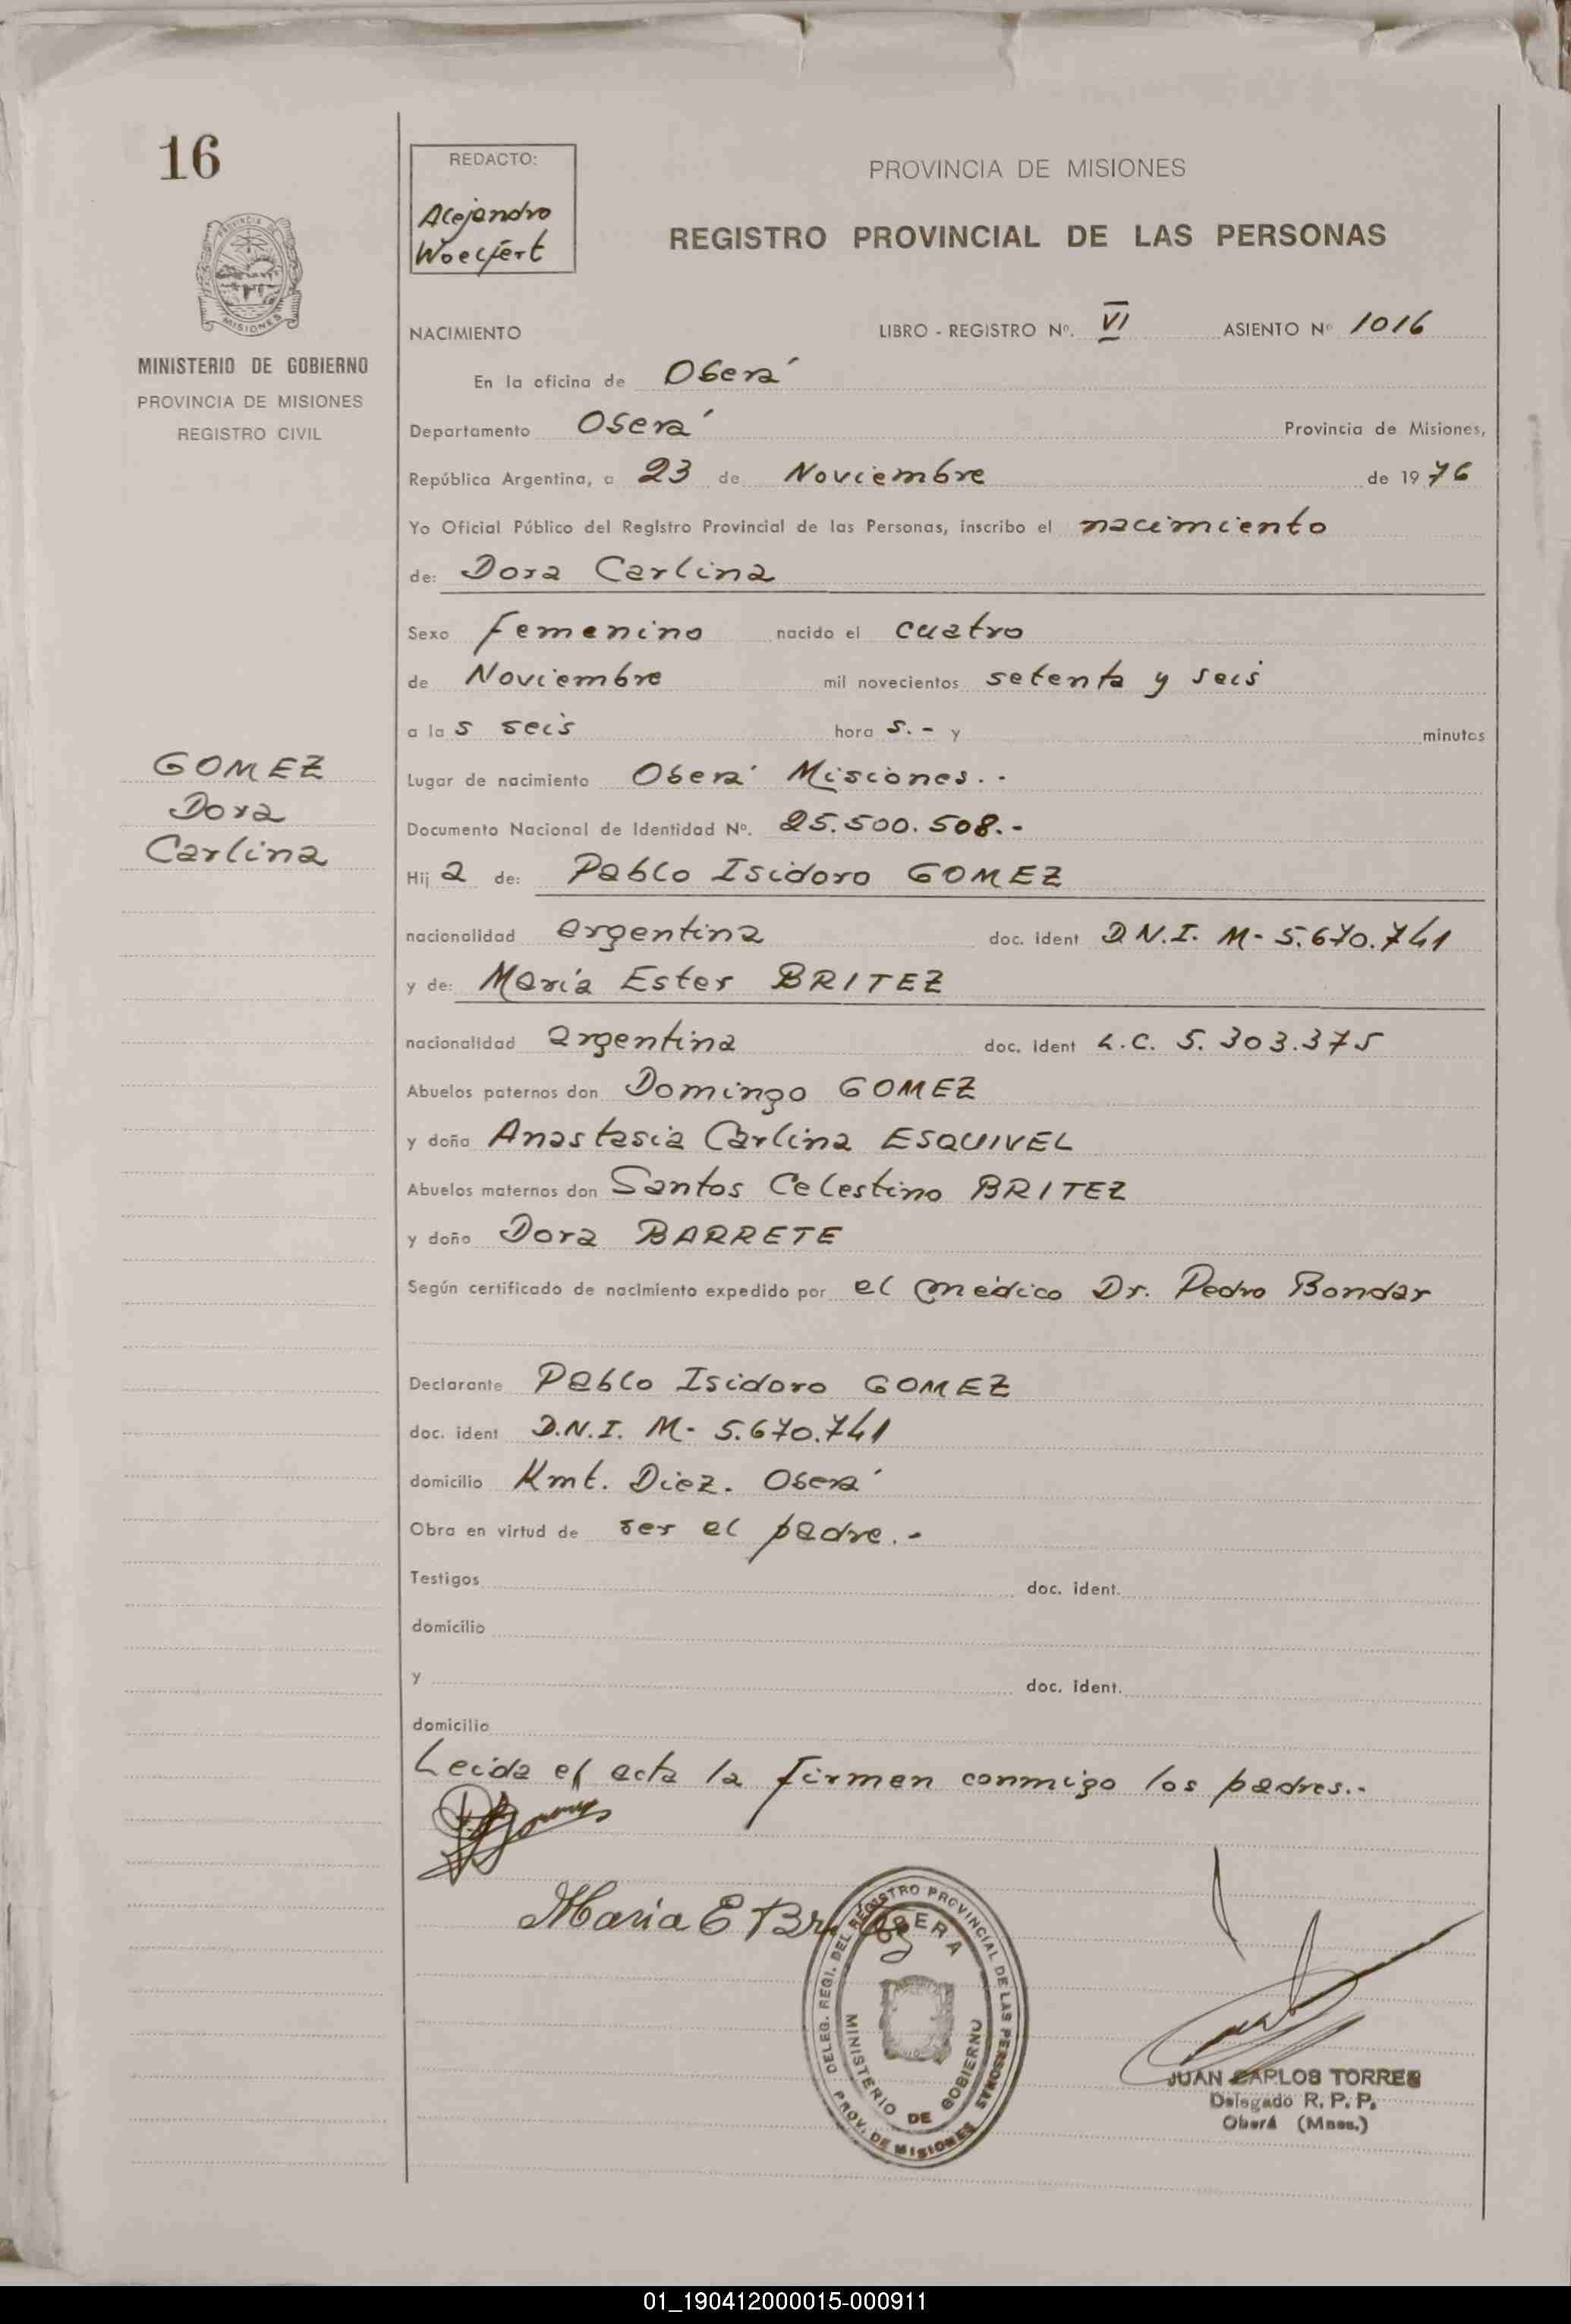 16
REDACTO:
Alejandro
Woelfert
PROVINCIA DE MISIONES
REGISTRO PROVINCIAL DE LAS PERSONAS
PROVINCIA DE
MISIONES
MINISTERIO DE GOBIERNO
PROVINCIA DE MISIONES
REGISTRO CIVIL
NACIMIENTO LIBRO - REGISTRO Nº. VI ASIENTO Nº 1016
En la oficina de Oberá
Departamento Oberá Provincia de Misiones,
República Argentina, a 23 de Noviembre de 1976
Yo Oficial Público del Registro Provincial de las Personas, inscribo el nacimiento
de: Dora Carlina
Sexo femenino nacido el cuatro
de Noviembre mil novecientos setenta y seis
a las seis horas.- y minutos
GOMEZ
Dora
Carlina
Lugar de nacimiento Oberá Misiones.-
Documento Nacional de Identidad Nº. 25.500.508.-
Hija de: Pablo Isidoro GOMEZ
nacionalidad argentina doc. ident D.N.I. M- 5.670.741
y de: María Ester BRITEZ
nacionalidad argentina doc. ident L.C. 5.303.375
Abuelos paternos don Domingo GOMEZ
y doña Anastasia Carlina ESQUIVEL
Abuelos maternos don Santos Celestino BRITEZ
y doña Dora BARRETE
Según certificado de nacimiento expedido por el médico Dr. Pedro Bondar
Declarante Pablo Isidoro GOMEZ
doc. ident D.N.I. M- 5.670.741
domicilio Kmt. Diez. Oberá
Obra en virtud de ser el padre.-
Testigos doc. ident.
domicilio
y doc. ident.
domicilio
Leida el acta la firman conmigo los padres.-
Maria E Britez
DELEG. REGI. DEL REGISTRO PROVINCIAL DE LAS PERSONAS
OBERA
MINISTERIO DE GOBIERNO
PROV. DE MISIONES
JUAN CARLOS TORRES
Delegado R. P. P.
Oberá (Mnes.)
01_190412000015-000911